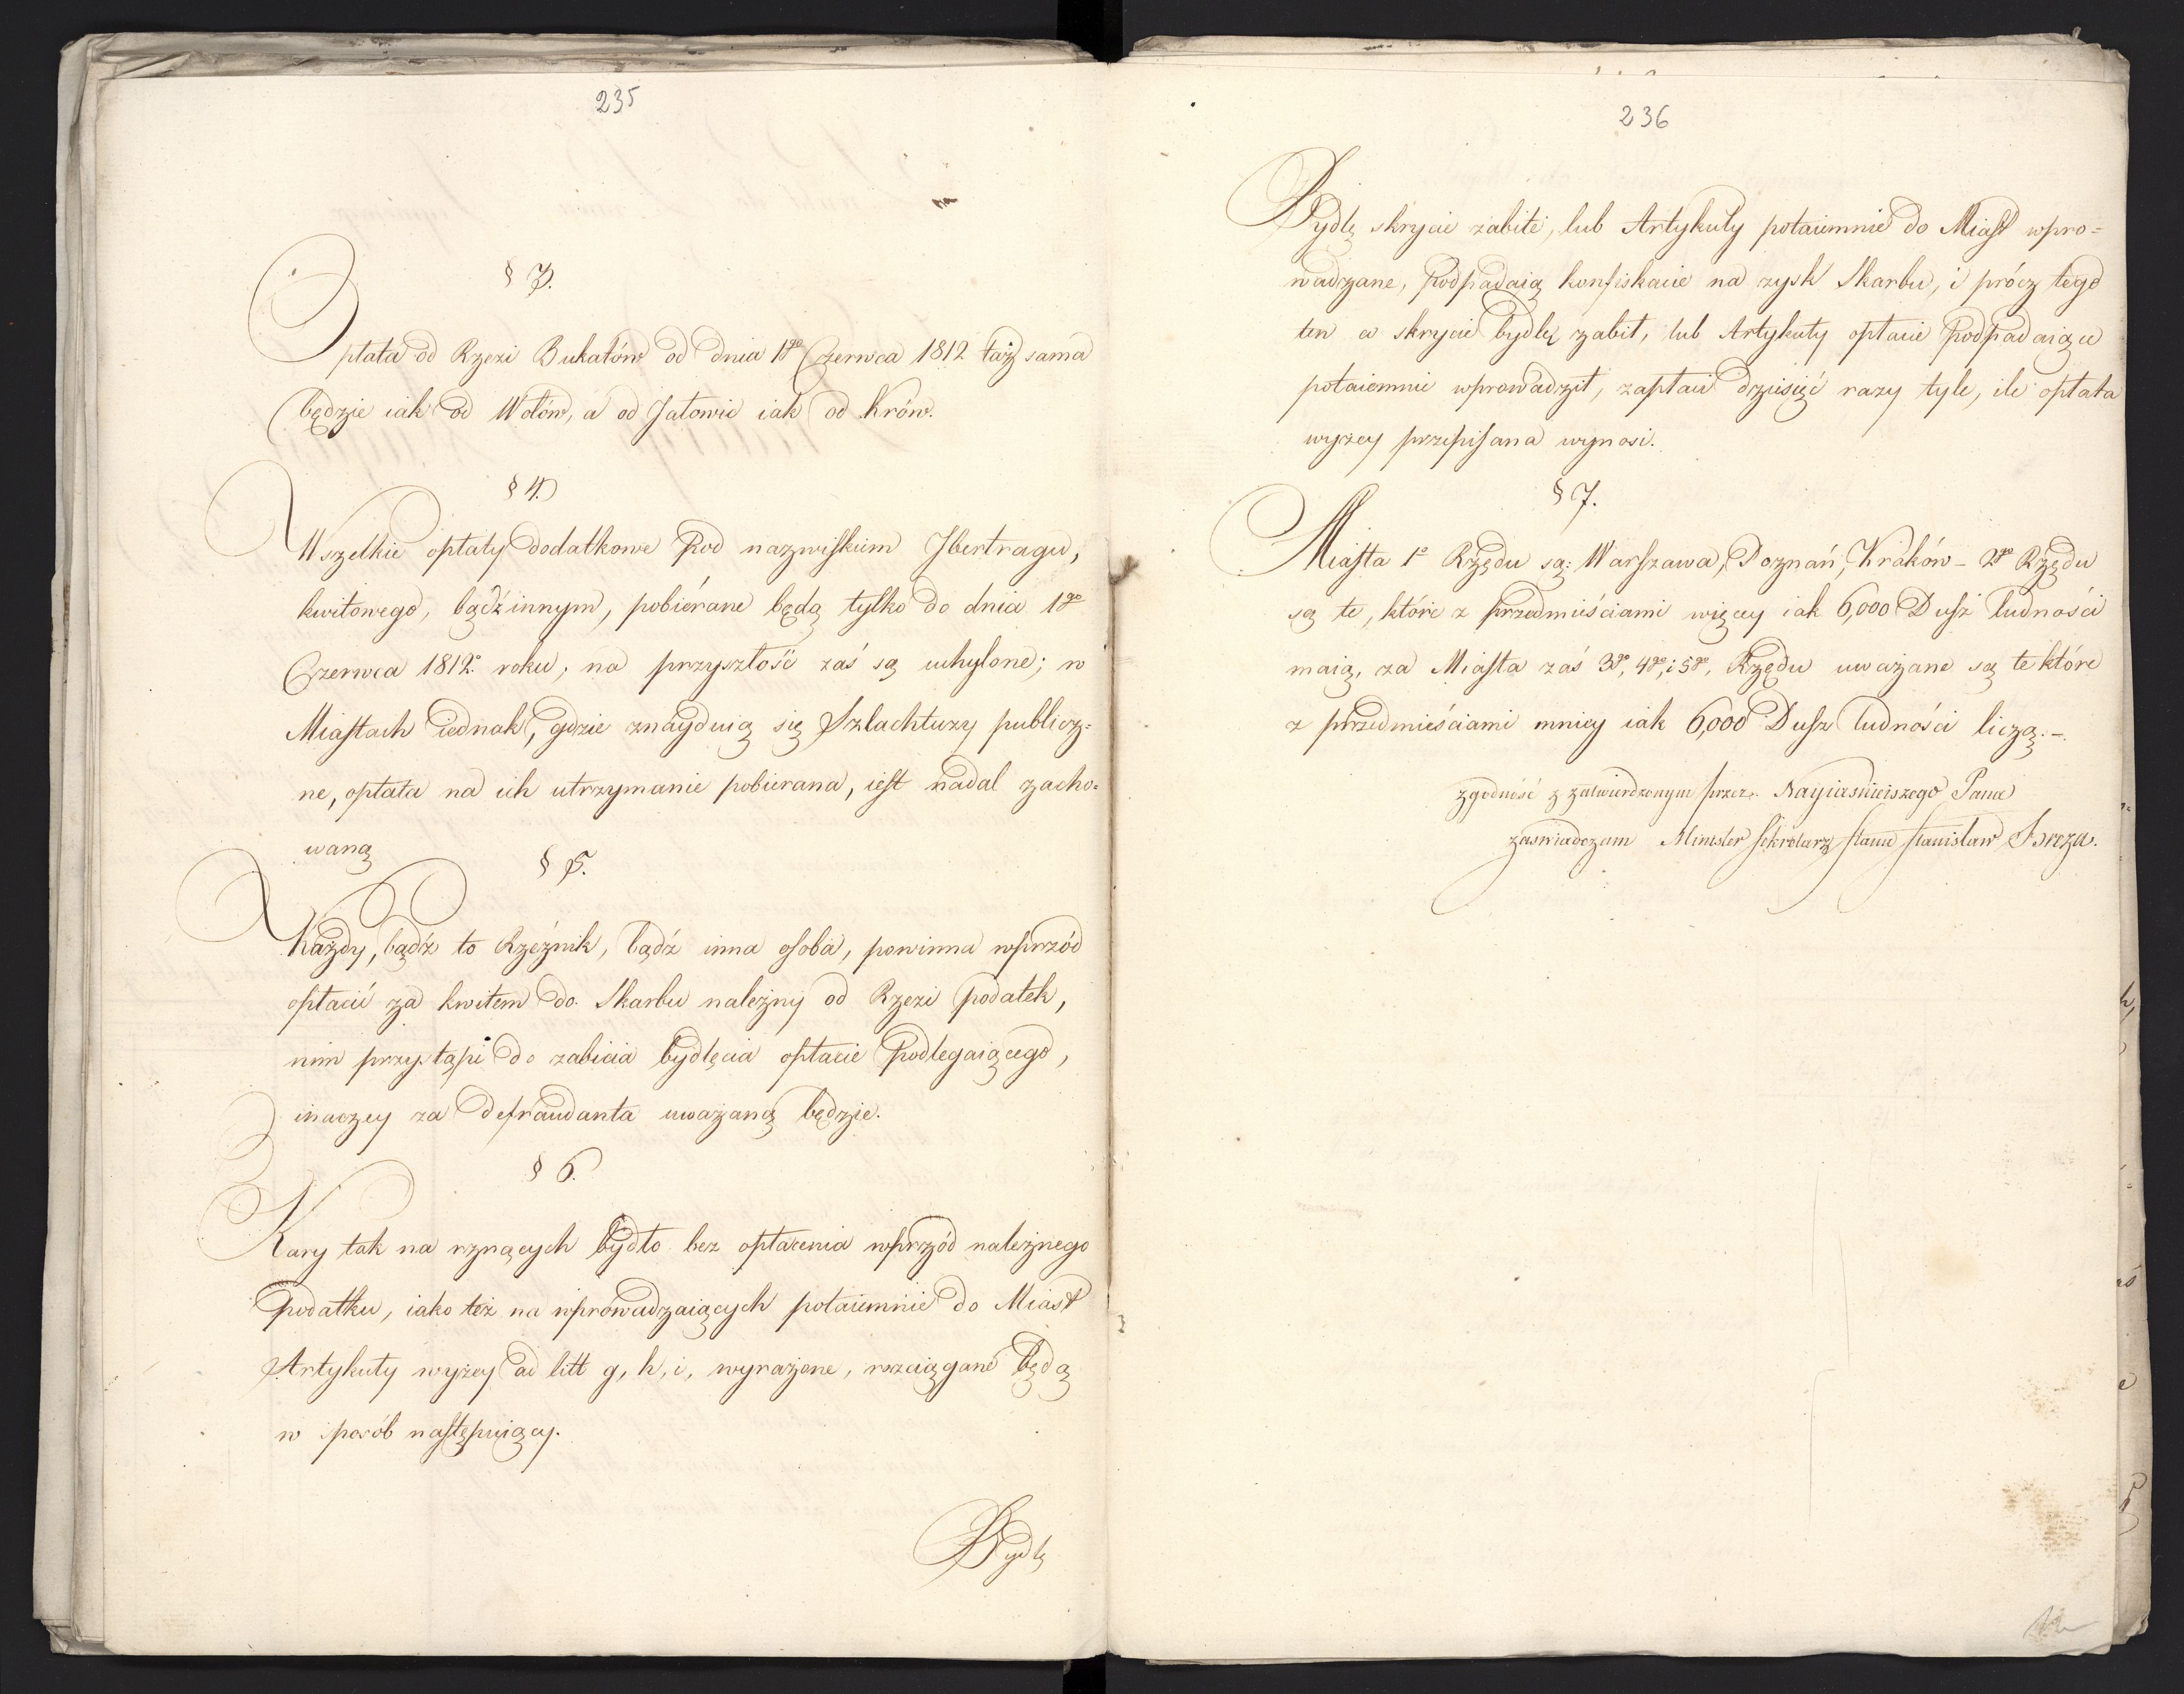 235
§ 3.
Opłata od Rzezi Bukatów od dnia 1go Czerwca 1812 taż sama
będzie iak od Wołów, a od Jałowic iak od Krów.
§ 4.
Wszelkie opłaty dodatkowe pod nazwiskiem Ibertragu,
kwitowego, bądź innym, pobiérane będą tylko do dnia 1go
Czerwca 1812o roku, na przyszłość zaś są uchylone; w
Miastach iednak, gdzie znayduią się Szlachtuzy publicz=
ne, opłata na ich utrzymanie pobierana, iest nadal zacho=
waną
§ 5.
Każdy, bądź to Rzeźnik, bądź inna osoba, powinna wprzód
opłacić za kwitem do Skarbu należny od Rzezi podatek,
nim przystąpi do zabicia bydlęcia opłacie podlegaiącego,
inaczey za defraudanta uważaną będzie.
§ 6.
Kary tak na rznących bydło bez opłacenia wprzód należnego
podatku, iako też na wprowadzaiących potaiemnie do Miast
Artykuły wyżey ad litt g, h, i, wyrażone, rozciągane będą
w sposób następuiący.
Bydlę
236
Bydlę skrycie zabite, lub Artykuły potaiemnie do Miast wpro=
wadzane, podpadaią konfiskacie na zysk Skarbu, i prócz tego
ten co skrycie bydlę zabił, lub Artykuły opłacie podpadaiące
potaiemnie wprowadził, zapłaci dziesięć razy tyle, ile opłata
wyżey przepisana wynosi.
§ 7.
Miasta 1o Rzędu są: Warszawa, Poznań, Kraków – 2go Rzędu
są te, które z przedmieściami więcey iak 6,000 Dusz ludności
maią, za Miasta zaś 3go, 4go, i 5go, Rzędu uważane są te które
z przedmieściami mniey iak 6,000 Dusz ludności liczą. –
zgodność z zatwierdzonym przez Nayiaśnieiszego Pana
zaświadczam Minister Sekretarz Stanu Stanisław Breza.